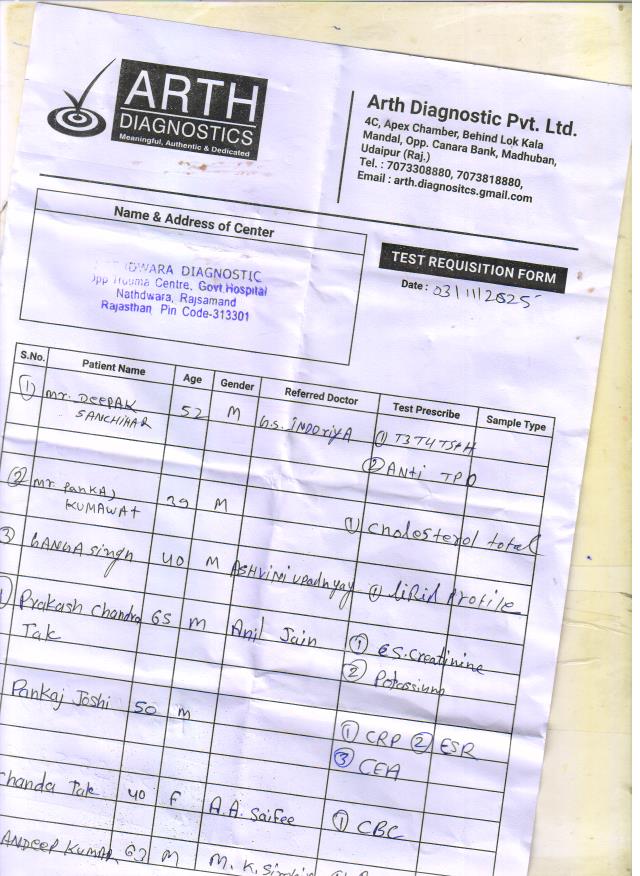 ARTH
DIAGNOSTICS
Meaningful, Authentic & Dedicated
Arth Diagnostic Pvt. Ltd.
4C, Apex Chamber, Behind Lok Kala
Mandal, Opp. Canara Bank, Madhuban,
Udaipur (Raj.)
Tel. : 7073308880, 7073818880,
Email : arth.diagnositcs.gmail.com
Name & Address of Center
DWARA DIAGNOSTIC
Opp Trauma Centre, Govt Hospital
Nathdwara, Rajsamand
Rajasthan Pin Code-313301
TEST REQUISITION FORM
Date : 03/11/2025
S.No. Patient Name Age Gender Referred Doctor Test Prescribe Sample Type
① mr. DEEPAK 52 M G.S. INDORIYA ① T3T4TSH
SANCHIHAR ② ANti TPO
② mr PANKAJ 29 M ① Cholesterol total
KUMAWAT
③ GANGA singh 40 M ASHVINI UPADhyay ① LiPid Profile
Prakash Chandra 65 M Anil Jain ① S.Creatinine
Tak ② Potassium
Pankaj Joshi 50 M ① CRP ② ESR
③ CEA
Chanda Tak 40 F A.A. Saifee ① CBC
ANDEEP KUMAR 63 M M. K.